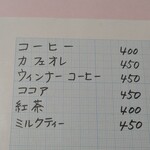 コーヒー 400
カフェオレ 450
ウィンナーコーヒー 450
ココア 450
紅茶 400
ミルクティー 450